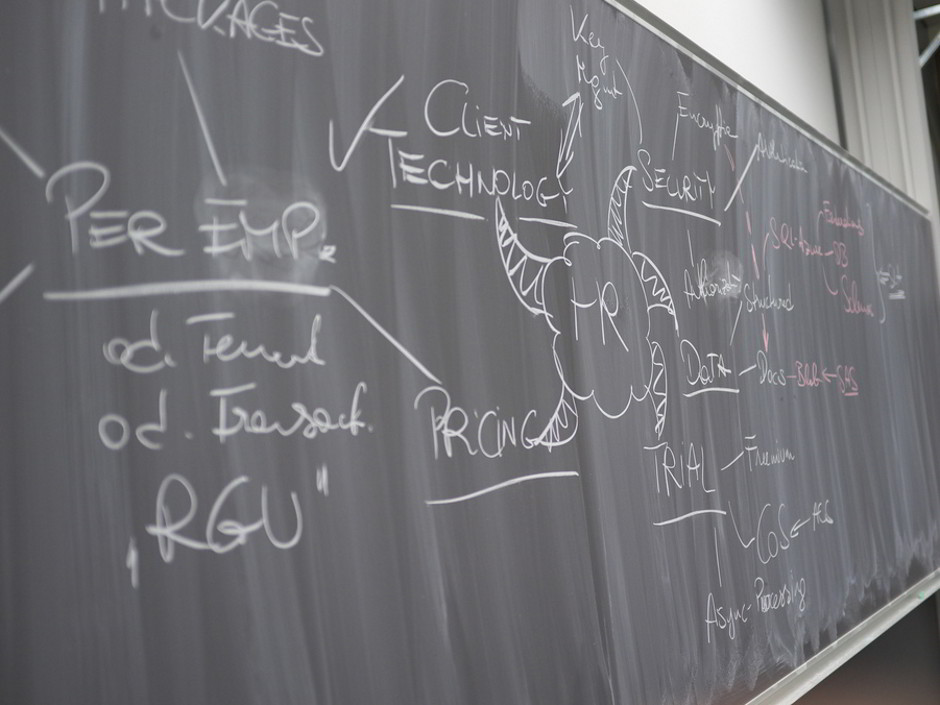 PACKAGES
PER EMP.
od. Tenant
od. Transact.
"RGU"
CLIENT
TECHNOLOGY
PRICING
HR
Key
Mgmt
SECURITY
Encryption
Authentication
Structured
SQL-Azure-DB
DATA
Docs - Blob ← SAS
TRIAL
Freemium
Async-Processing